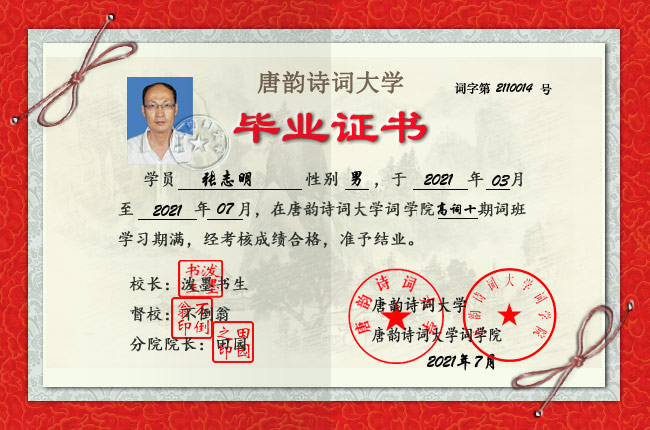 唐韵诗词大学
词字第 2110014 号
毕业证书
学员 张志明 性别 男 ，于 2021 年 03月
至 2021 年 07 月，在唐韵诗词大学词学院高词十期词班
学习期满，经考核成绩合格，准予结业。
校长：泼墨书生
督校：不倒翁
分院院长：田园
泼墨书生
不倒翁印
田园之印
唐韵诗词大学
唐韵诗词大学词学院
唐韵诗词大学
唐韵诗词大学词学院
2021年7月